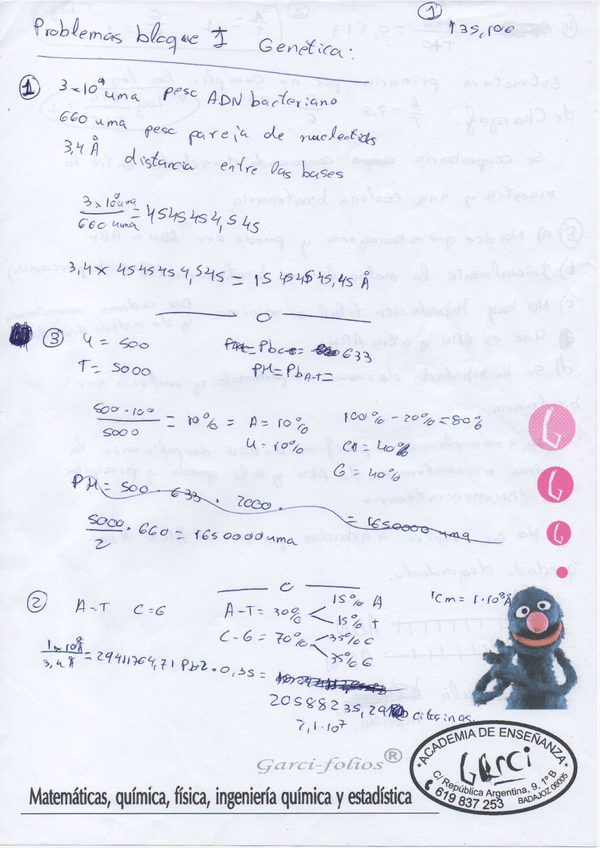 1 135,100
Problemas bloque I Genética:
1 3×10⁹ uma pesc ADN bacteriano
660 uma pesc pareja de nucleotids
3,4 Å distancia entre las bases
3×10⁹ uma / 660 uma = 4545454,545
3,4 × 4545454,545 = 15454545,45 Å
3 U = 500 = 633
T = 5000 PM = Pb A-T =
500·100 / 5000 = 10% = A = 10% 100% - 20% = 80%
U = 10% C = 40%
G = 40%
PM = 500 · 633 · 2000 · = 1650000 uma
5000 / 2 · 660 = 1650000 uma
2 A-T C=G A-T = 30% 15% A 1cm = 1·10⁸ Å
15% T
C-G = 70% 35% C
35% G
1×10⁸ Å / 3,4 Å = 29411764,71 Pb 2 · 0,35 =
20588235,29 citosinas.
2,1·10⁷
Garci-folios®
Matemáticas, química, física, ingeniería química y estadística
*ACADEMIA DE ENSEÑANZA*
Garci
C/ República Argentina, 9, 1º B
619 837 253 BADAJOZ 06005